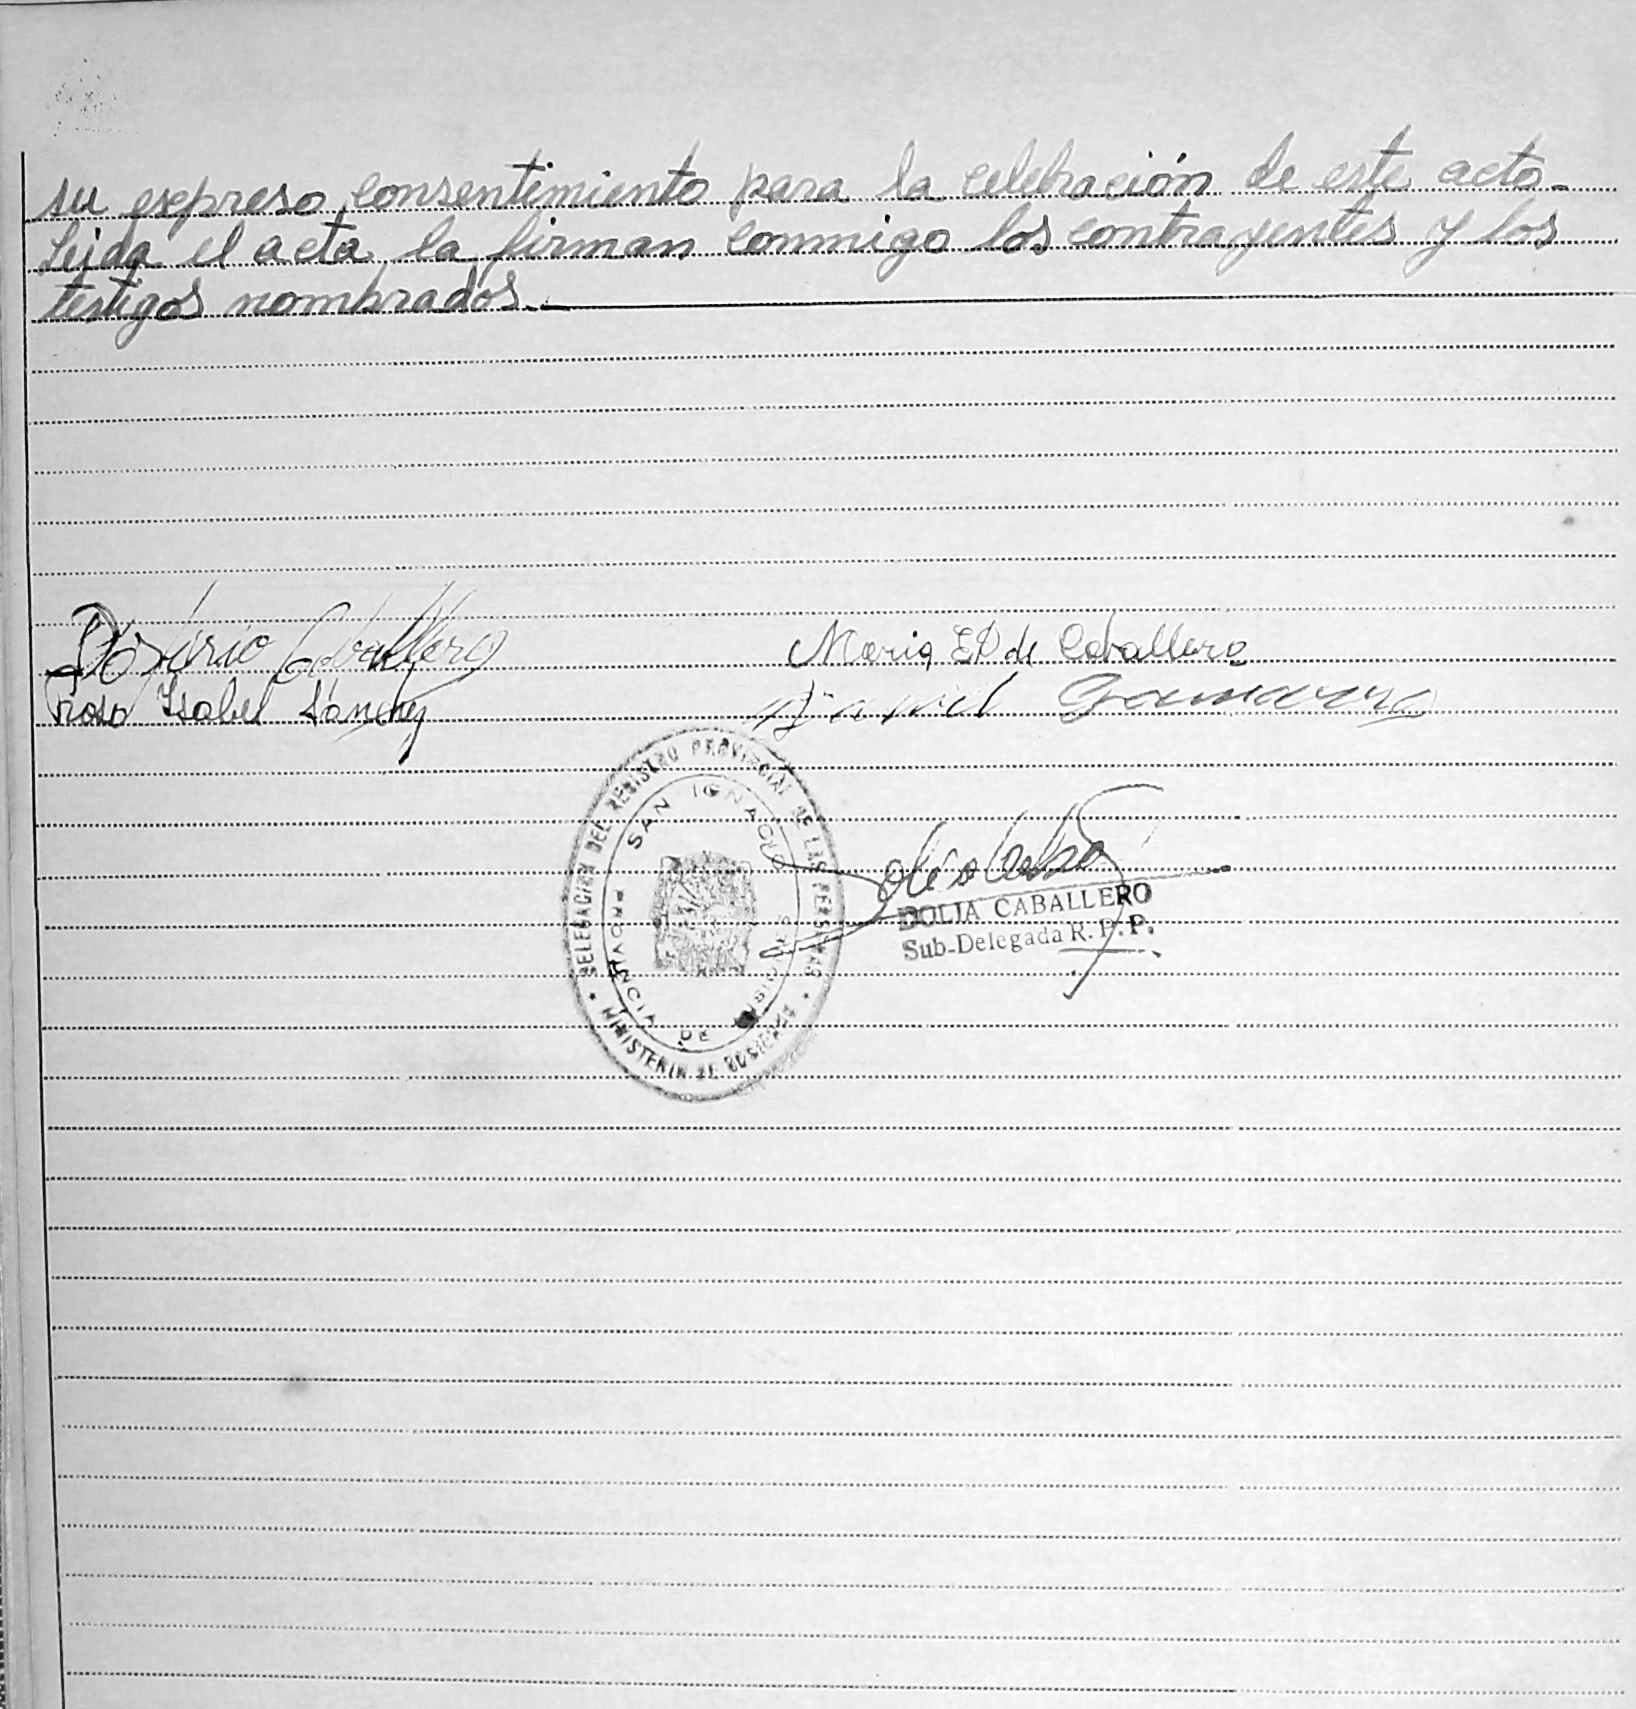 su expreso consentimiento para la celebración de este acto.
Leida el acta la firman conmigo los contrayentes y los
testigos nombrados.
Caballero
Maria E D de Caballero
Rosa Isabel Sánchez
Gamarra
DELEGACION DEL REGISTRO PROVINCIAL DE LAS PERSONAS
SAN IGNACIO
PROVINCIA DE MISIONES
MINISTERIO DE GOBIERNO
DOLIA CABALLERO
Sub-Delegada R. P. P.